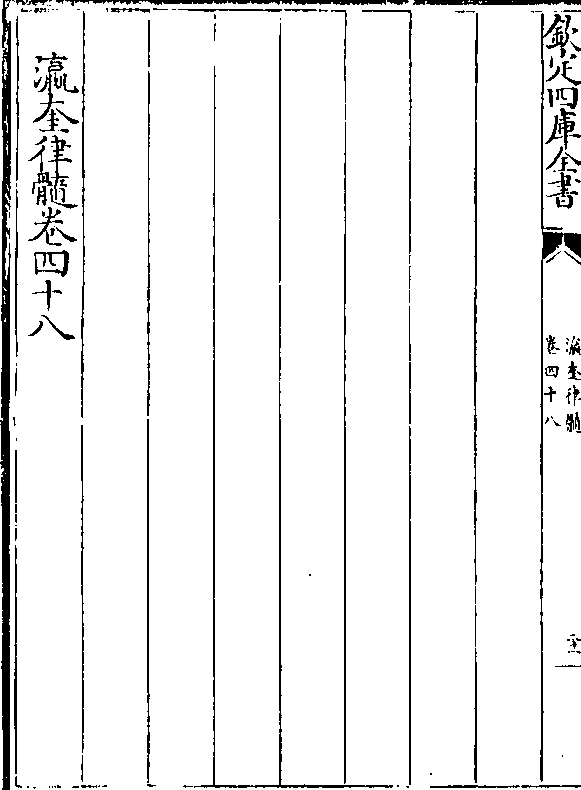 欽定四庫全書
瀛奎律髓
卷四十八
瀛奎律髓卷四十八